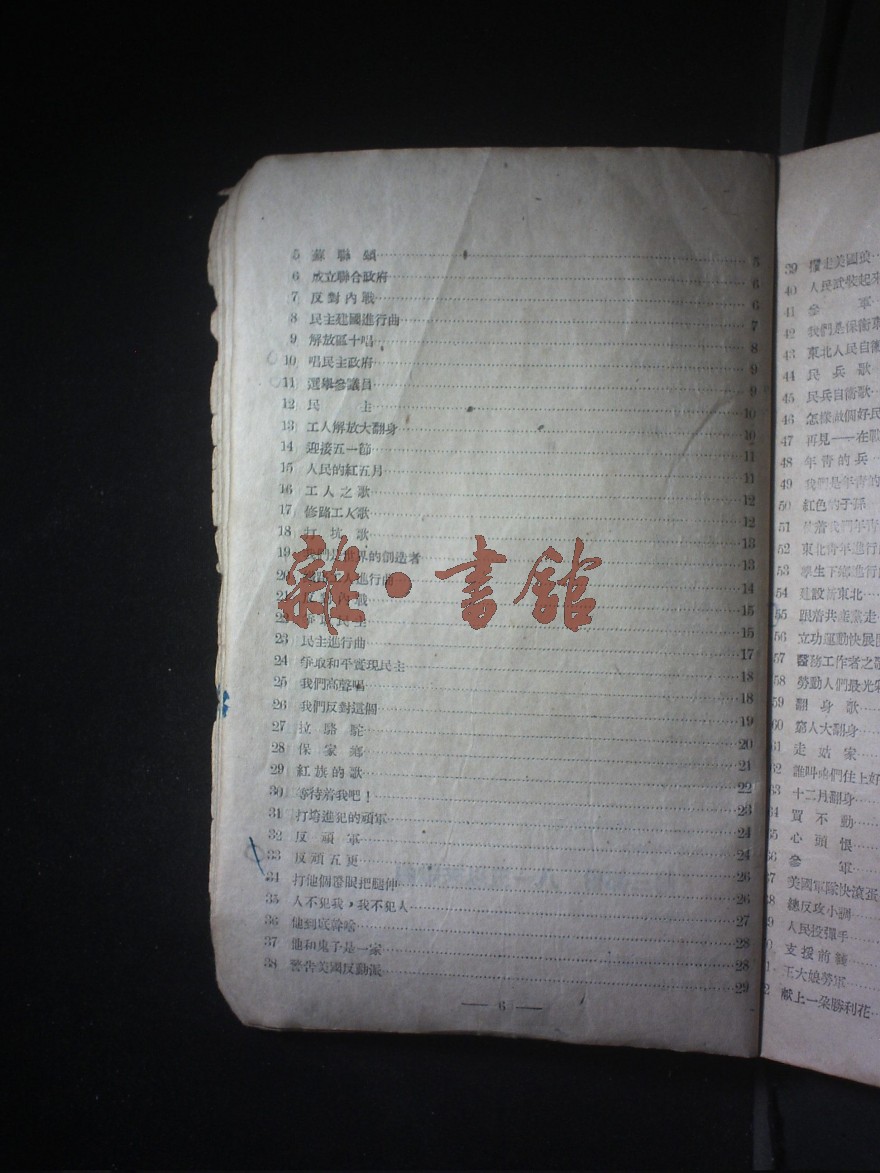 5 蘇聯頌 5
6 成立聯合政府 6
7 反對內戰 6
8 民主建國進行曲 7
9 解放區十唱 8
10 唱民主政府 9
11 選舉參議員 9
12 民主 10
13 工人解放大翻身 10
14 迎接五一節 11
15 人民的紅五月 11
16 工人之歌 12
17 修路工人歌 12
18 打坑歌 13
19 我們是世界的創造者 13
20 進行曲 14
21 內戰 15
22 民主 15
23 民主進行曲 17
24 爭取和平實現民主 18
25 我們高聲唱 18
26 我們反對這個 19
27 拉駱駝 20
28 保家鄉 21
29 紅旗的歌 22
30 等待着我吧！ 23
31 打垮進犯的頑軍 24
32 反頑軍 24
33 反頑五更 26
34 打他個瞪眼把腿伸 26
35 人不犯我，我不犯人 27
36 他到底靠啥 28
37 他和鬼子是一家 28
38 警告美國反動派 29
— 6 —
雜·書館
39 攆走美國狼
40 人民武裝起來
41 參軍
42 我們是保衛東
43 東北人民自衛
44 民兵歌
45 民兵自衛歌
46 怎樣做個好民
47 再見——在戰
48 年青的兵
49 我們是年青的
50 紅色的子孫
51 着我們年青
52 東北青年進行曲
53 學生下鄉進行曲
54 建設新東北
55 跟着共產黨走
56 立功運動快展開
57 醫務工作者之歌
58 勞動人們最光榮
59 翻身歌
60 窮人大翻身
61 走姑家
62 誰叫咱們住上好
63 十二月翻身
64 買不動
65 心頭恨
66 參軍
67 美國軍隊快滾蛋
68 總反攻小調
69 人民投彈手
70 支援前綫
71 王大娘勞軍
72 献上一朵勝利花